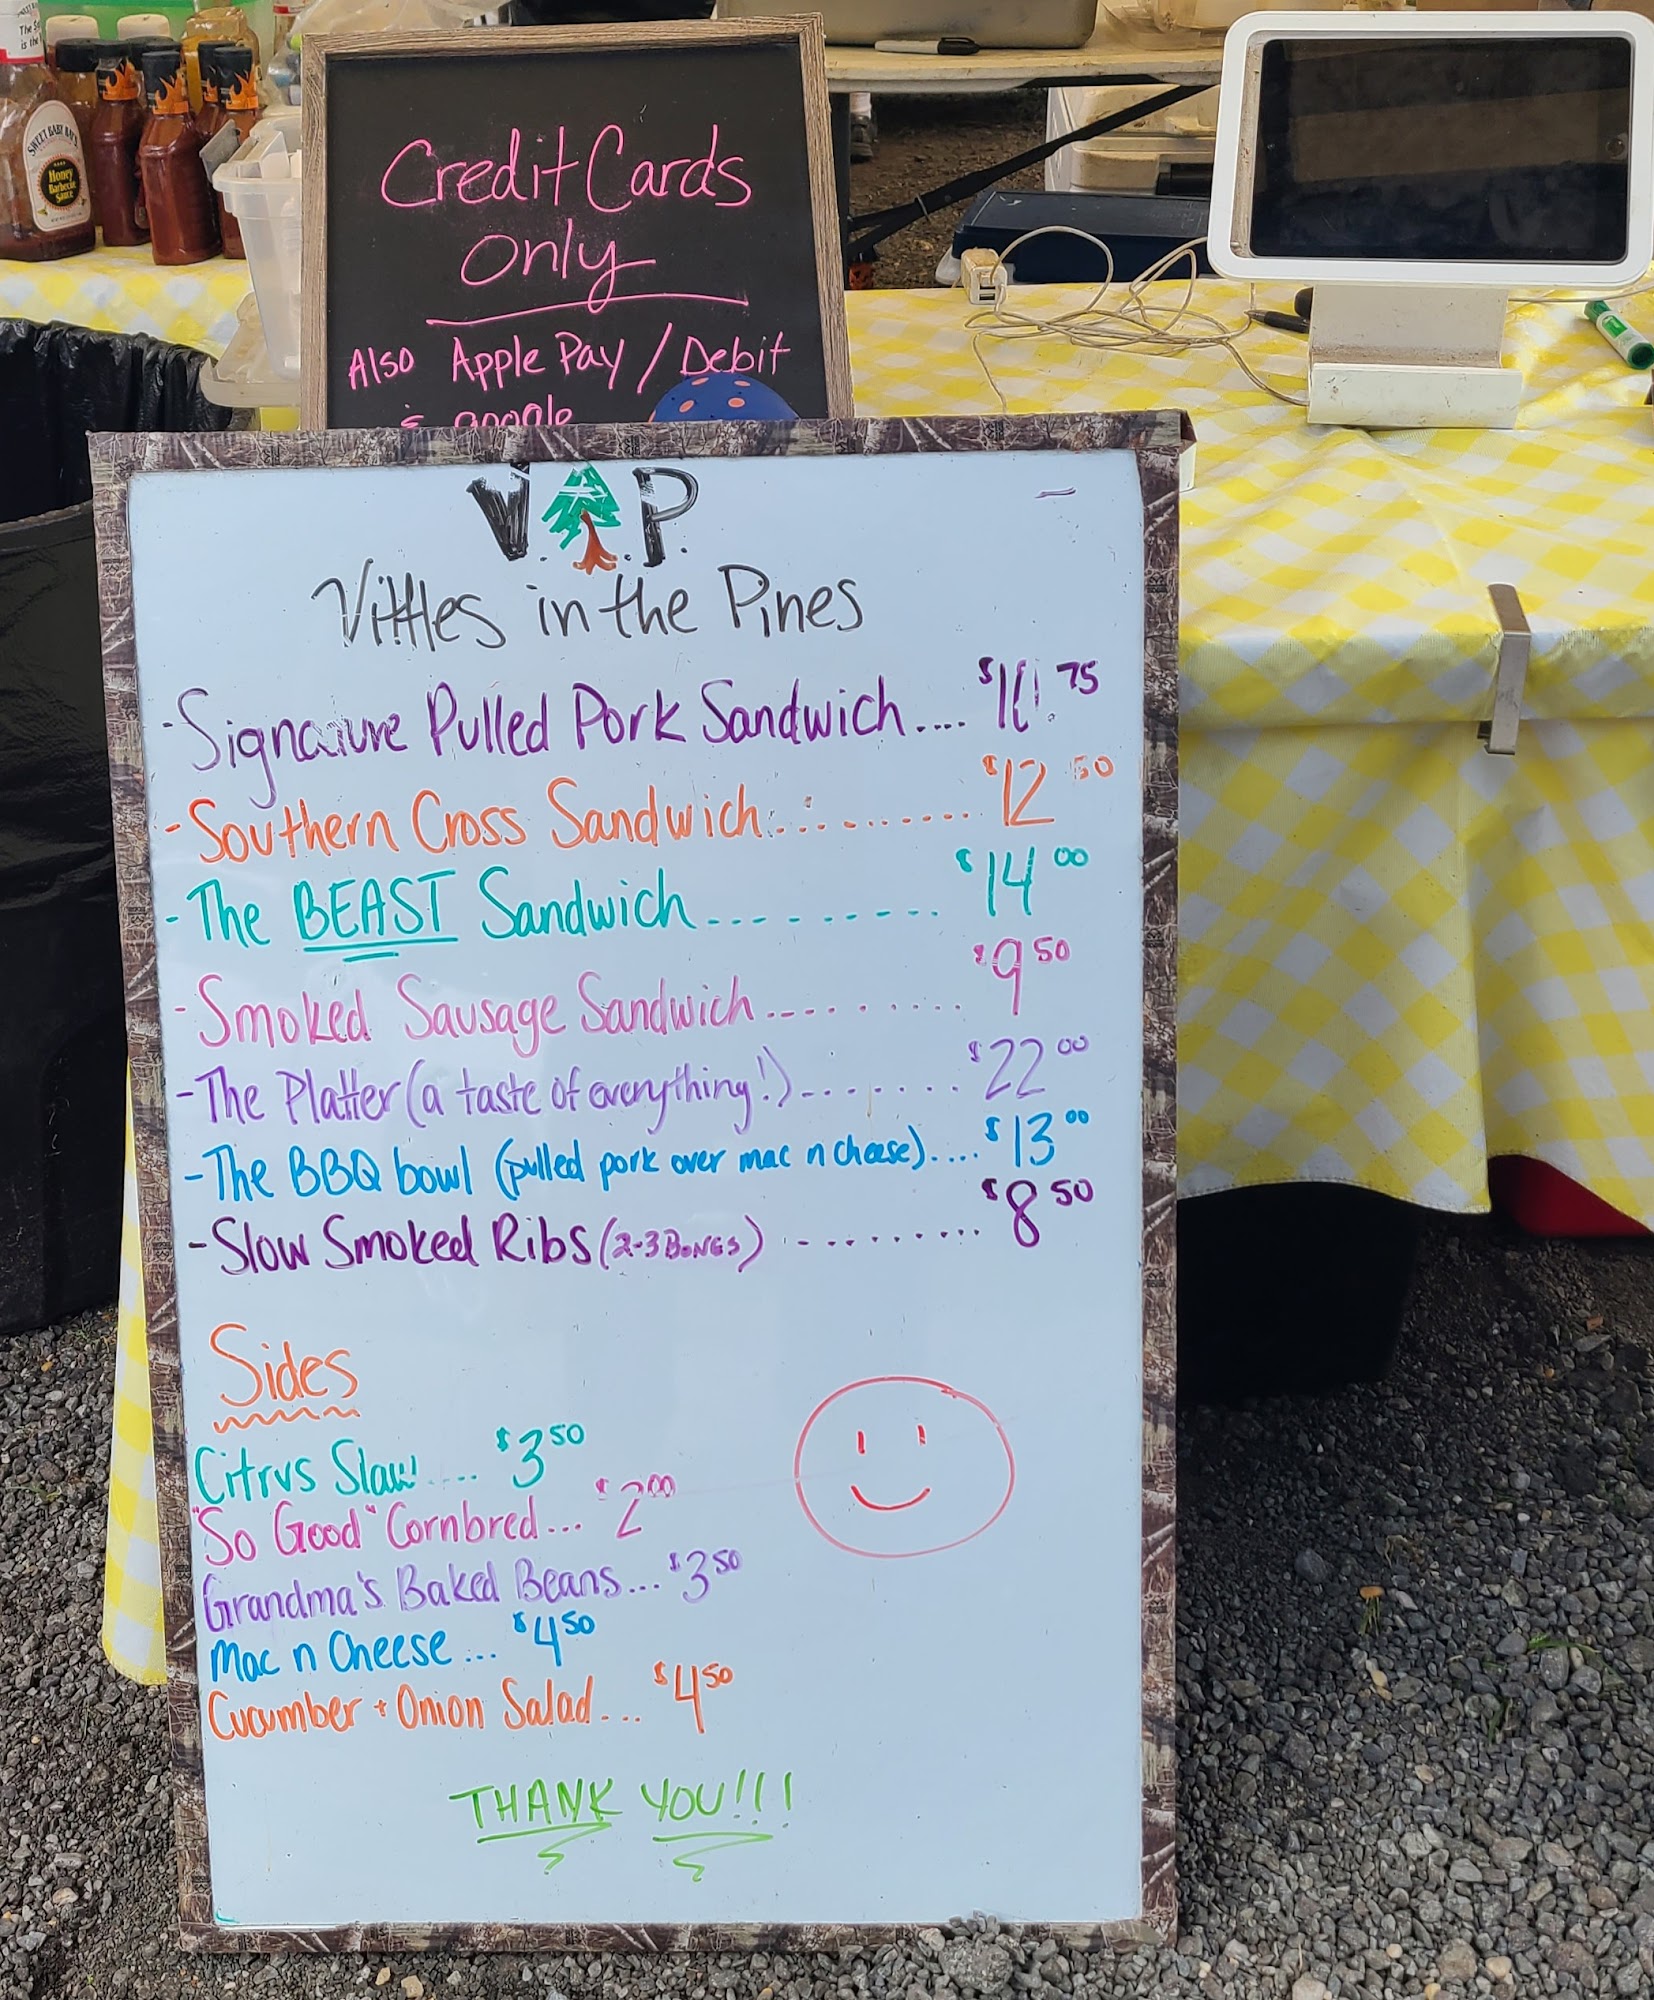 The S
is the
SWEET BABY RAY'S
Honey
Barbecue
Sauce
Credit Cards
only
Also Apple Pay / Debit
& google
V.I.P.
Vittles in the Pines
- Signature Pulled Pork Sandwich....
- Southern Cross Sandwich............ $12 50
- The BEAST Sandwich.......... $14 00
- Smoked Sausage Sandwich......... $9 50
- The Platter (a taste of everything!)........ $22 00
- The BBQ bowl (pulled pork over mac n cheese).... $13 00
- Slow Smoked Ribs (2-3 BONES) .......... $8 50
Sides
Citrus Slaw .... $3 50
"So Good" Cornbred... $2 00
Grandma's Baked Beans... $3 50
Mac n Cheese... $4 50
Cucumber + Onion Salad... $4 50
THANK YOU!!!